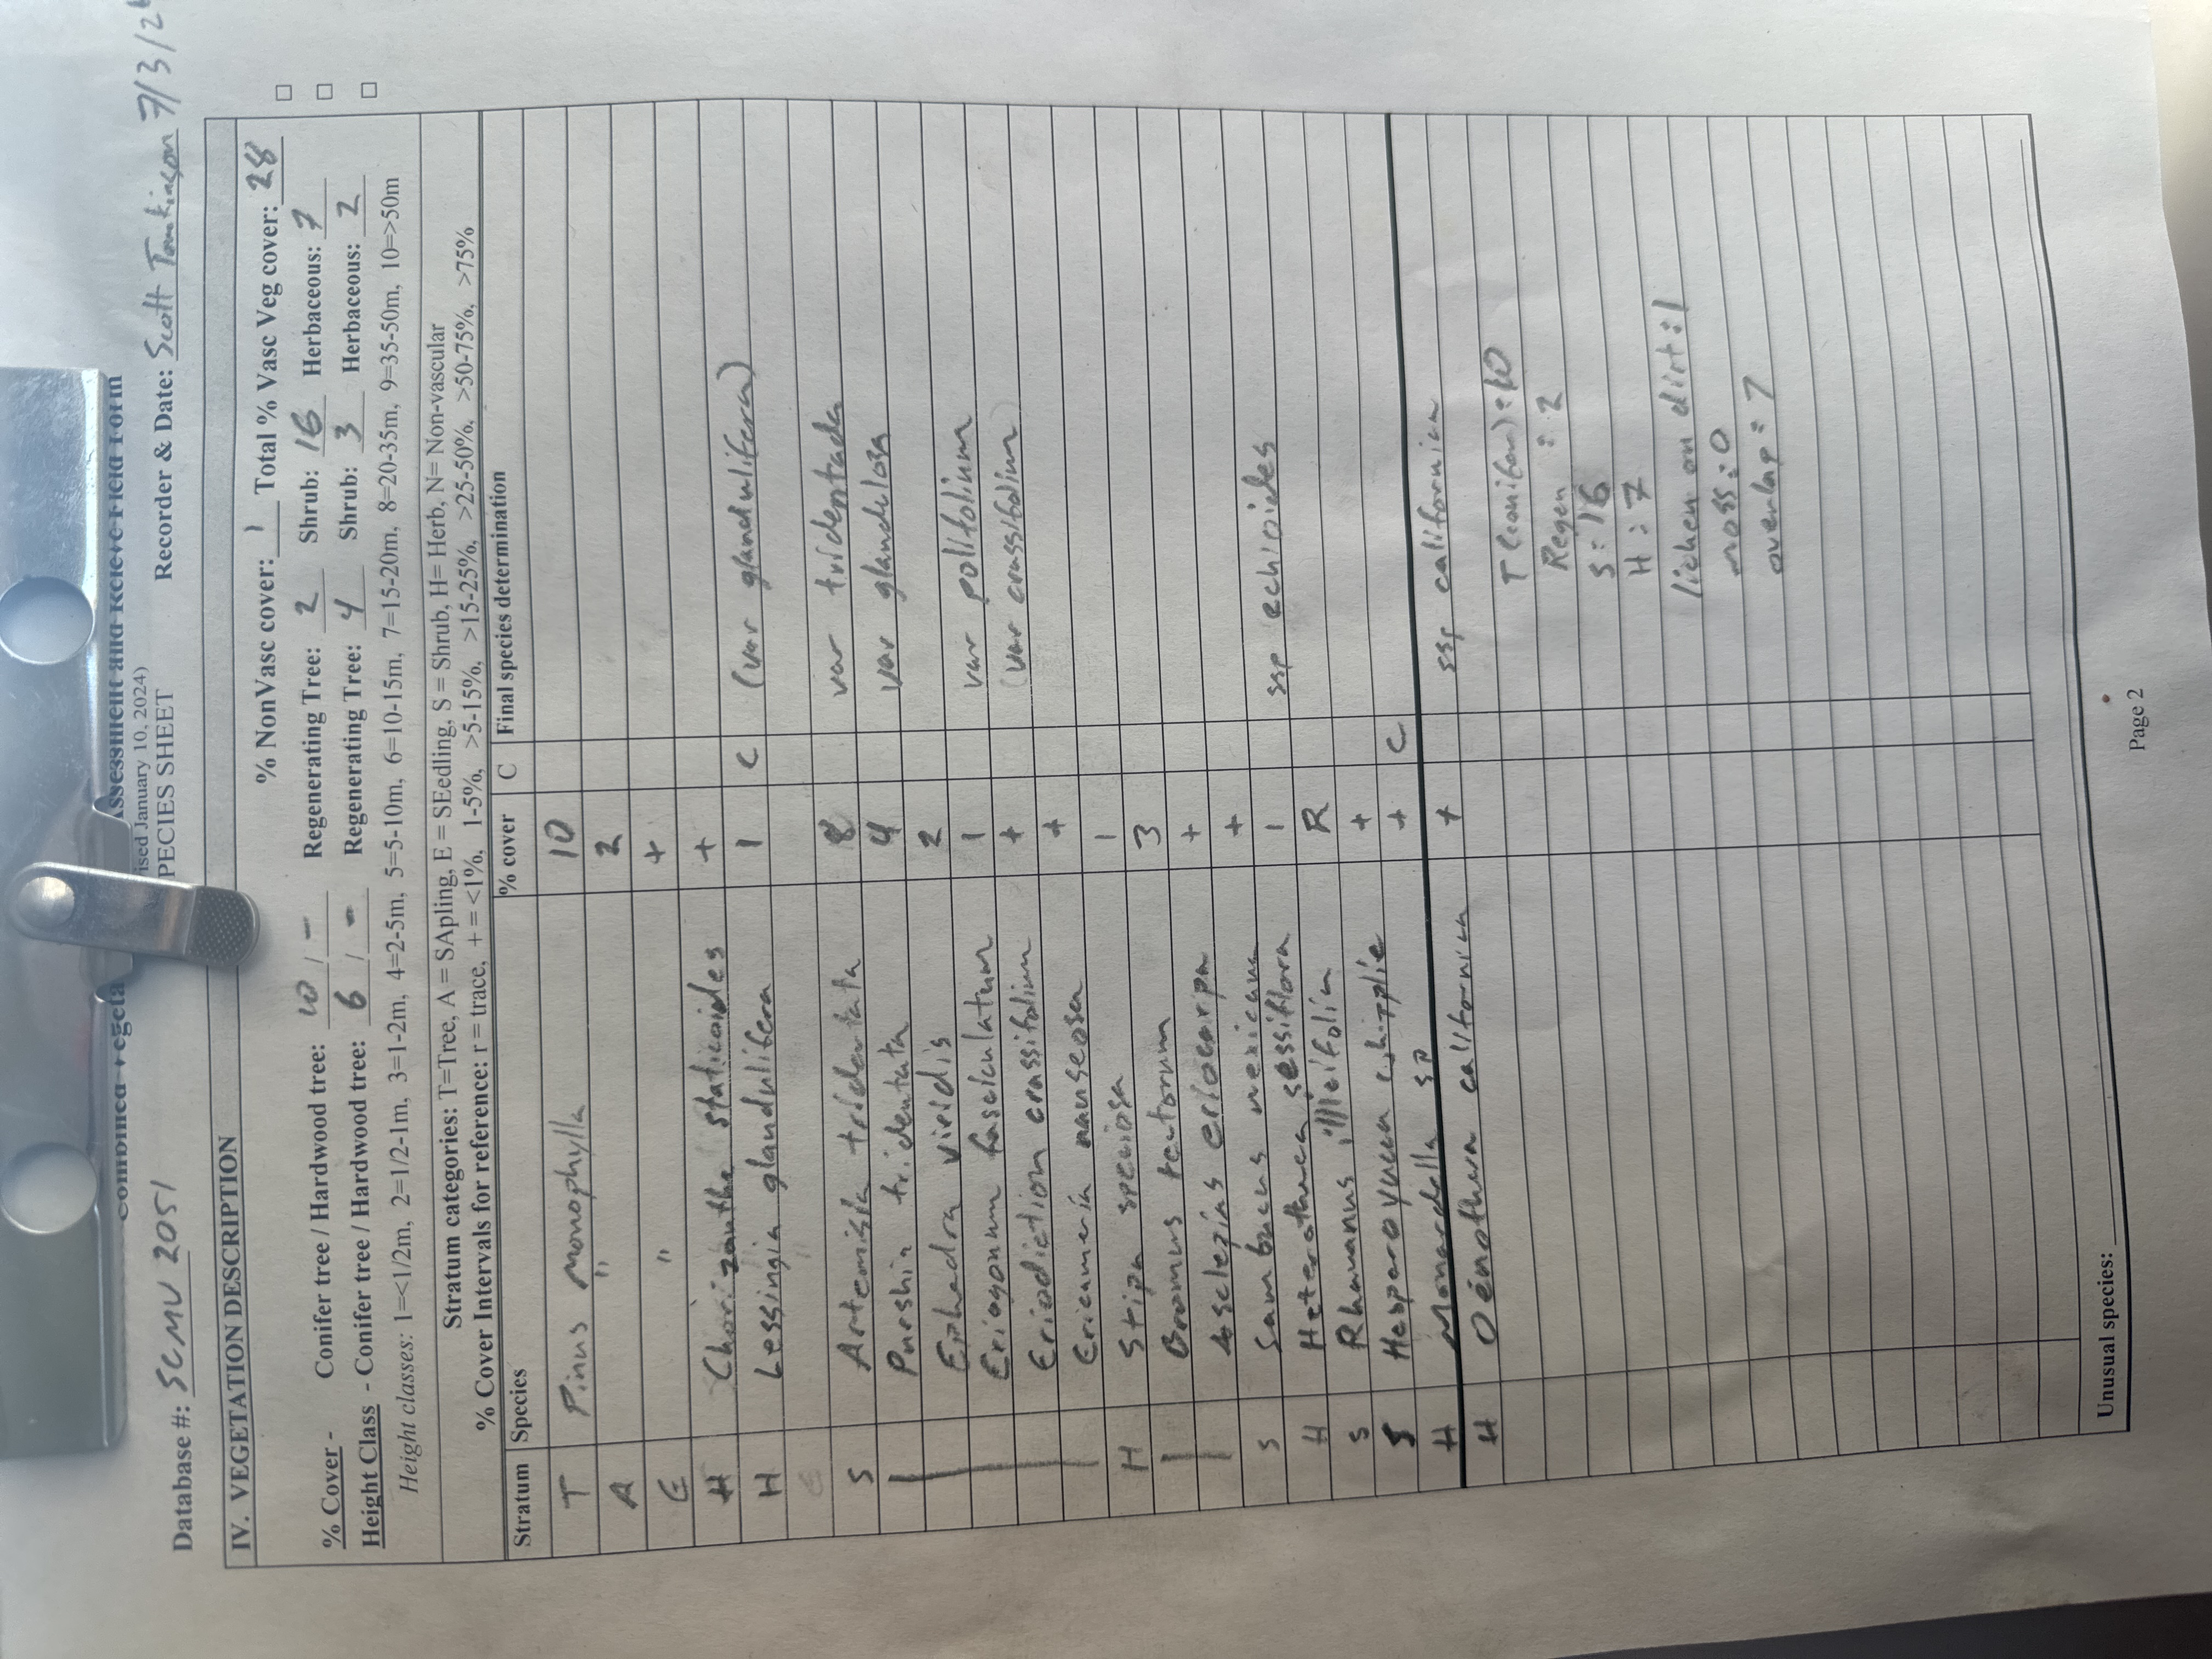 Combined Vegeta Assessment and Relevé Field Form
ised Jad January 10, 2024)
PECIES SHEET
Database #: SCMU 2051 Recorder & Date: Scott Tomkinson 7/3/2
IV. VEGETATION DESCRIPTION
% NonVasc cover: 1 Total % Vasc Veg cover: 28
% Cover - Conifer tree / Hardwood tree: 10 / - Regenerating Tree: 2 Shrub: 16 Herbaceous: 7
Height Class - Conifer tree / Hardwood tree: 6 / - Regenerating Tree: 4 Shrub: 3 Herbaceous: 2
Height classes: 1=<1/2m, 2=1/2-1m, 3=1-2m, 4=2-5m, 5=5-10m, 6=10-15m, 7=15-20m, 8=20-35m, 9=35-50m, 10=>50m
Stratum categories: T=Tree, A = SApling, E = SEedling, S = Shrub, H= Herb, N= Non-vascular
% Cover Intervals for reference: r = trace, + = <1%, 1-5%, >5-15%, >15-25%, >25-50%, >50-75%, >75%
Stratum Species % cover C Final species determination
T Pinus monophylla 10
A " 2
E " +
H Chorizanthe staticoides +
H Lessingia glandulifera 1 C (var glandulifera)
S Artemisia tridentata 8 var tridentada
Purshia tridentata 4 var glandulosa
Ephedra viridis 2
Eriogonum fasciculatum 1 var polifolium
Eriodiction crassifolium + (var crassifolium)
Ericameria nauseosa +
H Stipa speciosa 1
Bromus tectorum 3
Asclepias eriocarpa +
S Sambucus mexicana +
H Heterotheca sessiflora 1 ssp echioides
S Rhamanus illicifolia R
S Hesperoyucca whipplie +
H Monardella sp + C
H Oenothera californica + ssp californica
T (conifer): 10
Regen : 2
S: 16
H: 7
lichen on dirt: 1
moss: 0
overlap = 7
Unusual species:
Page 2